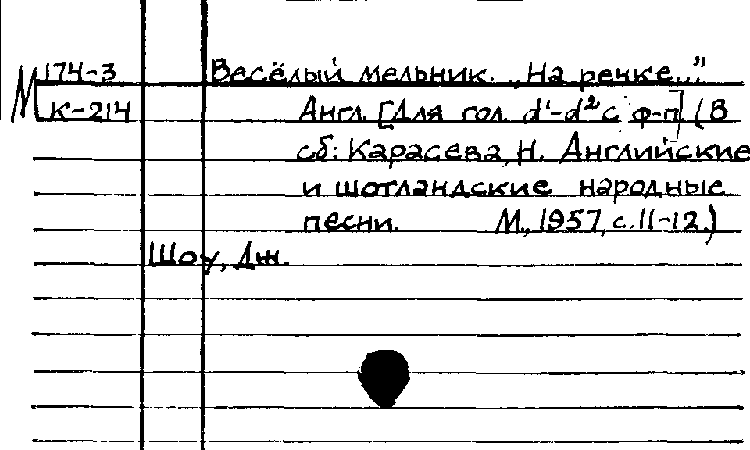 М 174-3 Весёлый мельник. „На речке..."
К-214 Англ. [Для гол. d¹-d² с ф-п] (В
сб: Карасева, Н. Английские
и шотландские народные
песни. М., 1957, с. 11-12.)
Шоу, Дж.